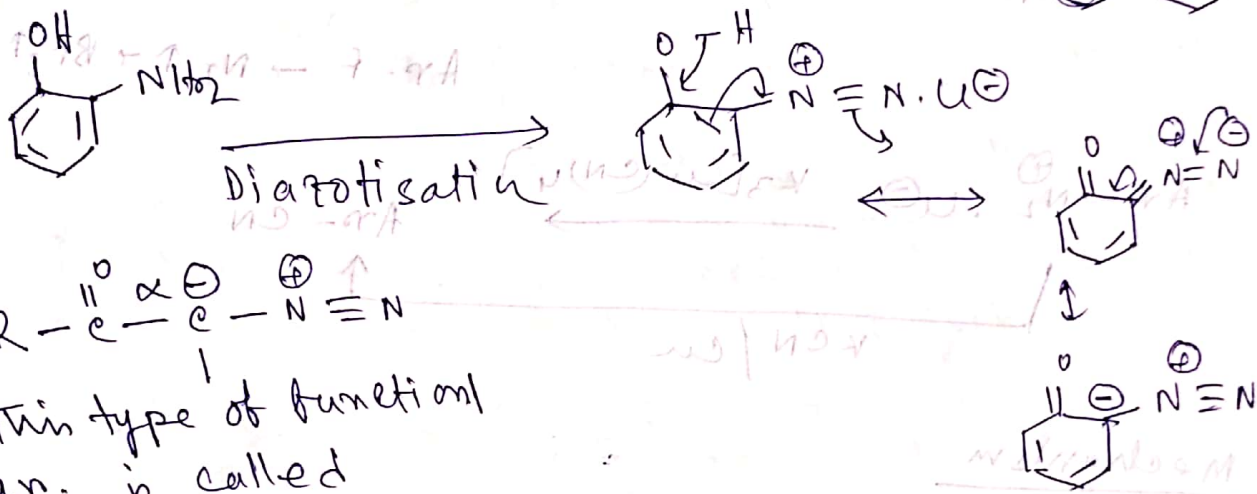 OH
NH2
Diazotisatin
O H
⊕
N ≡ N . Cl⊖
O ⊕ ⊖
N = N
O
|| α ⊖ ⊕
R - C - C - N ≡ N
This type of functional
gr. is called
O ⊕
⊖ N ≡ N